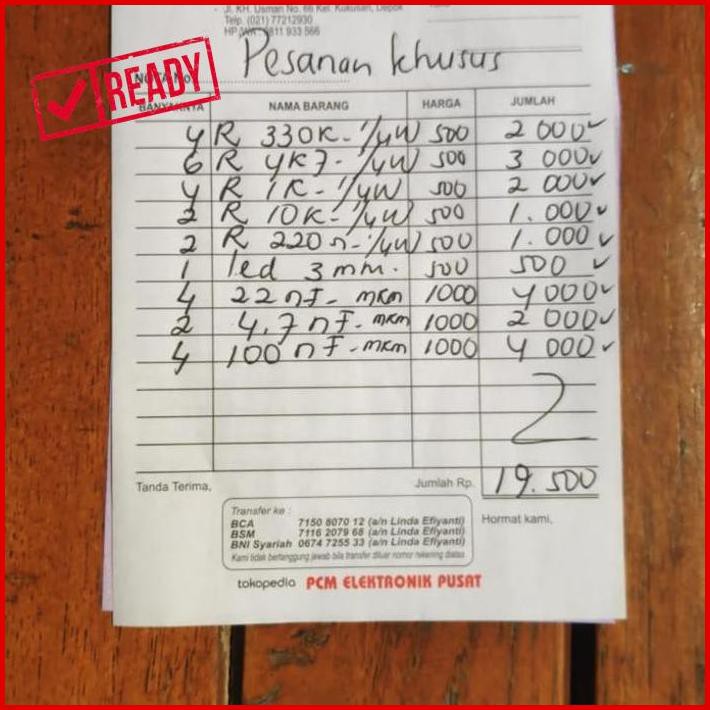 JL. KH. Usman No. 66 Kel. Kukusan, Depok
Telp. (021) 77212930
HP /WA : 0811 933 566
Pesanan khusus
NOTA No.
READY
BANYAKNYA NAMA BARANG HARGA JUMLAH
4 R 330K-1/4W 500 2 000
6 R 4K7-1/4W 500 3 000
4 R 1K-1/4W 500 2 000
2 R 10K-1/4W 500 1.000
2 R 220Ω-1/4W 500 1.000
1 led 3mm. 500 500
4 22nF-mkm 1000 4 000
2 4.7nF-mkm 1000 2 000
4 100nF-mkm 1000 4 000
Tanda Terima, Jumlah Rp. 19.500
Hormat kami,
Transfer ke :
BCA 7150 8070 12 (a/n Linda Efiyanti)
BSM 7116 2079 68 (a/n Linda Efiyanti)
BNI Syariah 0674 7255 33 (a/n Linda Efiyanti)
Kami tidak bertanggung jawab bila transfer diluar nomor rekening diatas
tokopedia PCM ELEKTRONIK PUSAT